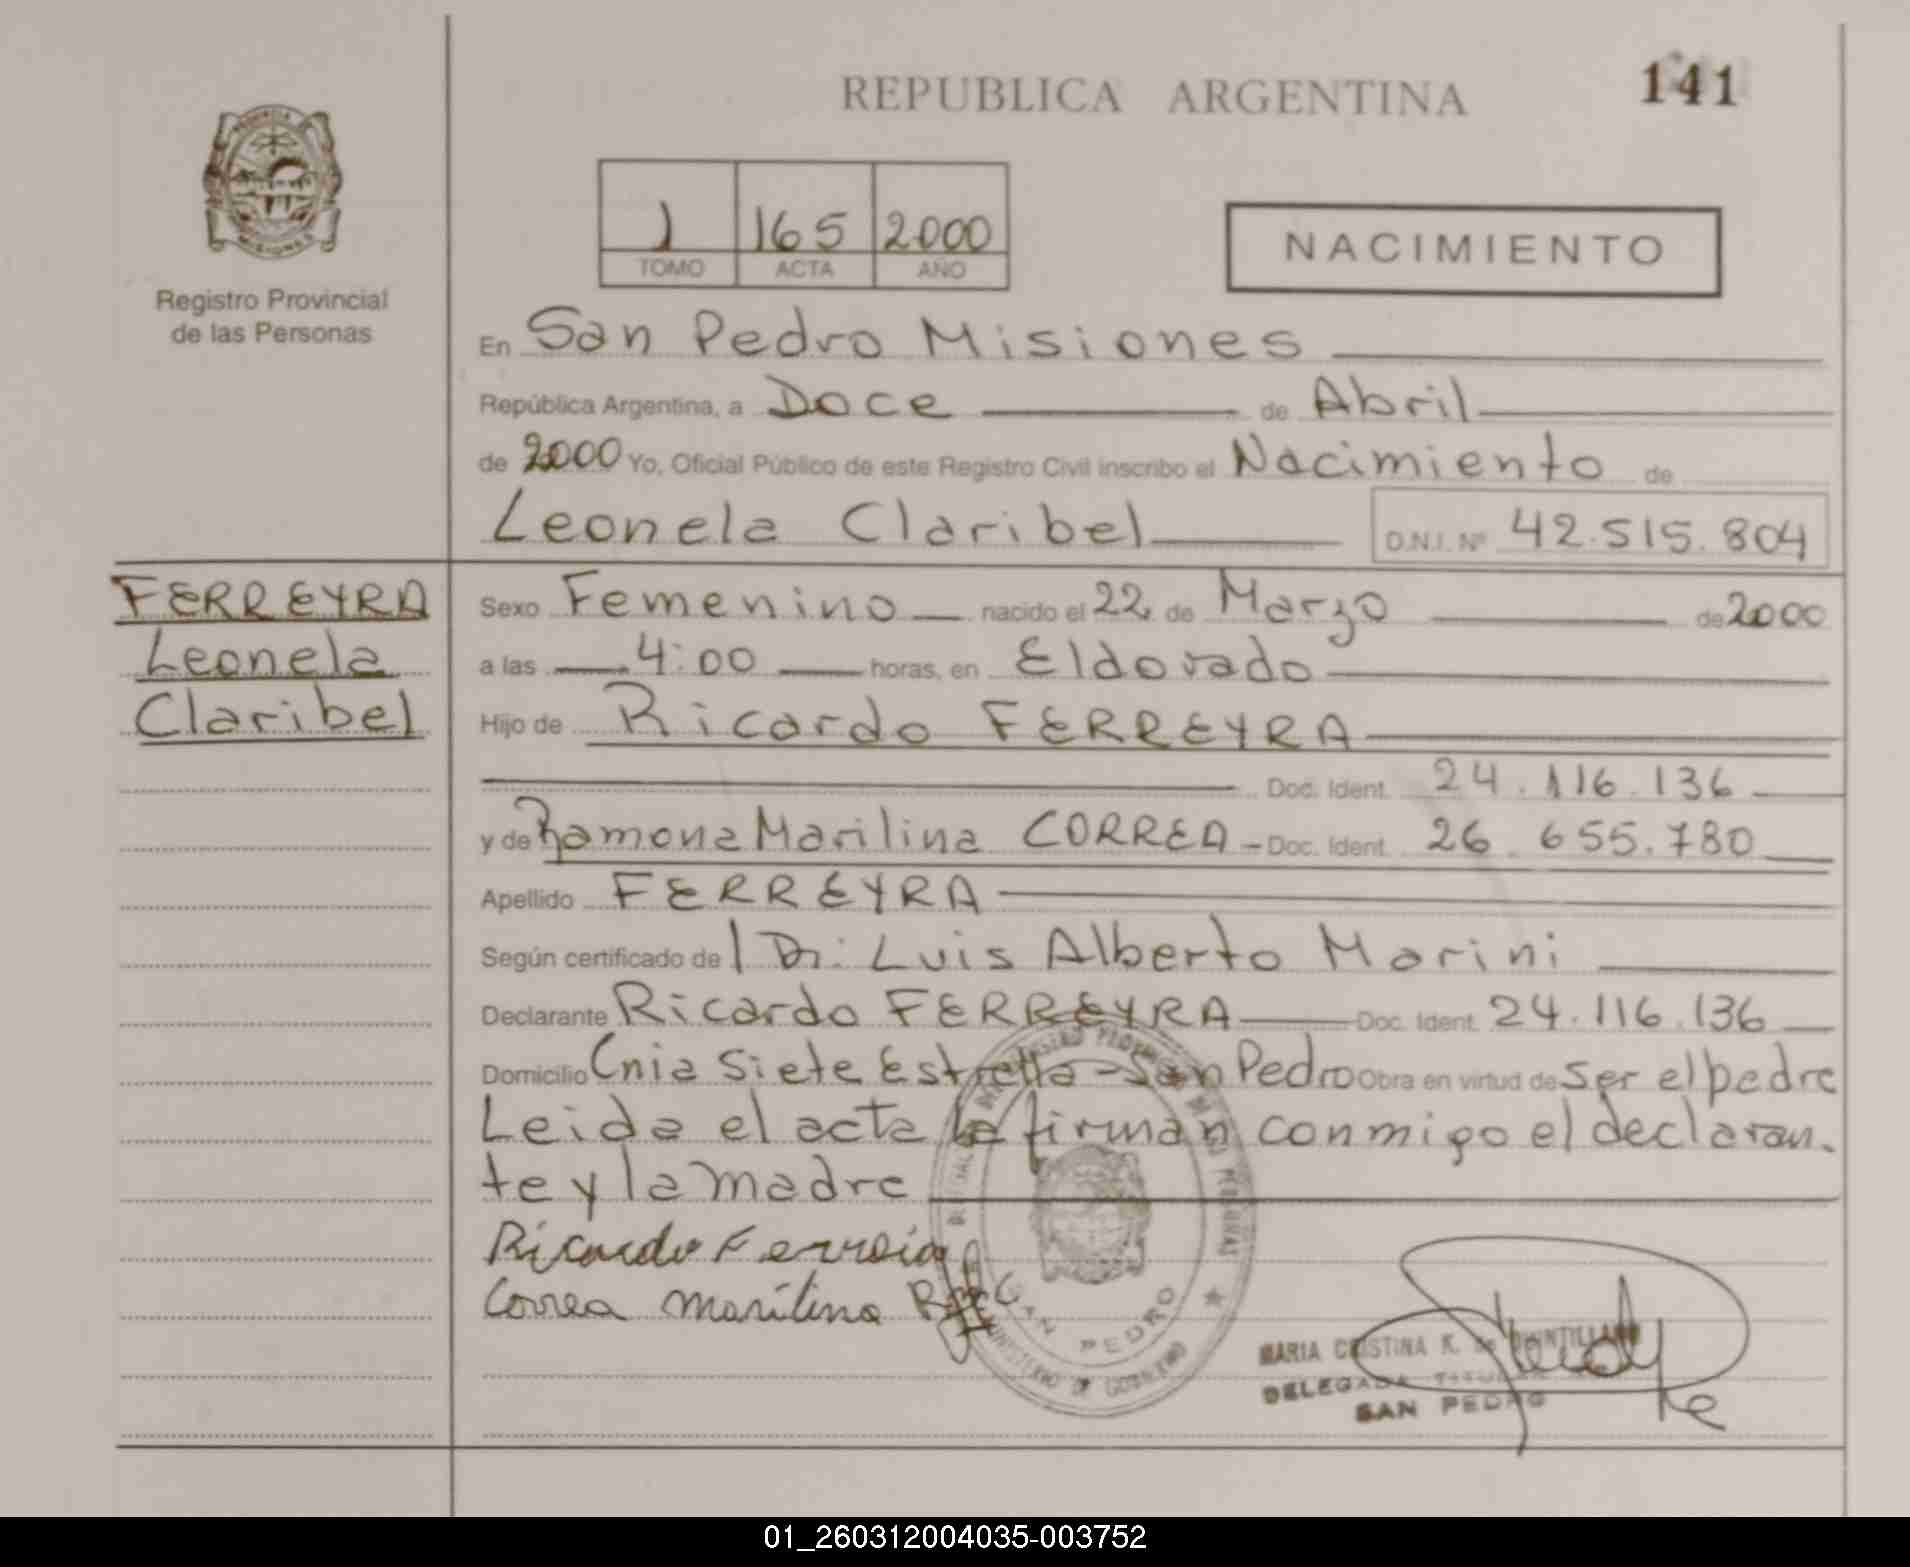 REPUBLICA ARGENTINA
141
PROVINCIA
MISIONES
Registro Provincial
de las Personas
1 165 2000
TOMO ACTA AÑO
NACIMIENTO
En San Pedro Misiones
República Argentina, a Doce de Abril
de 2000 Yo, Oficial Público de este Registro Civil inscribo el Nacimiento de
Leonela Claribel D.N.I. Nº 42.515.804
FERREYRA
Leonela
Claribel
Sexo Femenino nacido el 22 de Marzo de 2000
a las 4:00 horas, en Eldorado
Hijo de Ricardo FERREYRA
Doc. Ident. 24.116.136
y de Ramona Marilina CORREA - Doc. Ident. 26.655.780
Apellido FERREYRA
Según certificado del Dr: Luis Alberto Marini
Declarante Ricardo FERREYRA Doc. Ident. 24.116.136
Domicilio Cnia Siete Estrella - San Pedro Obra en virtud de ser el padre
Leida el acta la firman conmigo el declaran.
te y la madre
Ricardo Ferreira
Correa marilina
SAN PEDRO
MINISTERIO DE GOBIERNO
MARIA CRISTINA K. de QUINTILLAN
DELEGADA TITULAR
SAN PEDRO
01_260312004035-003752